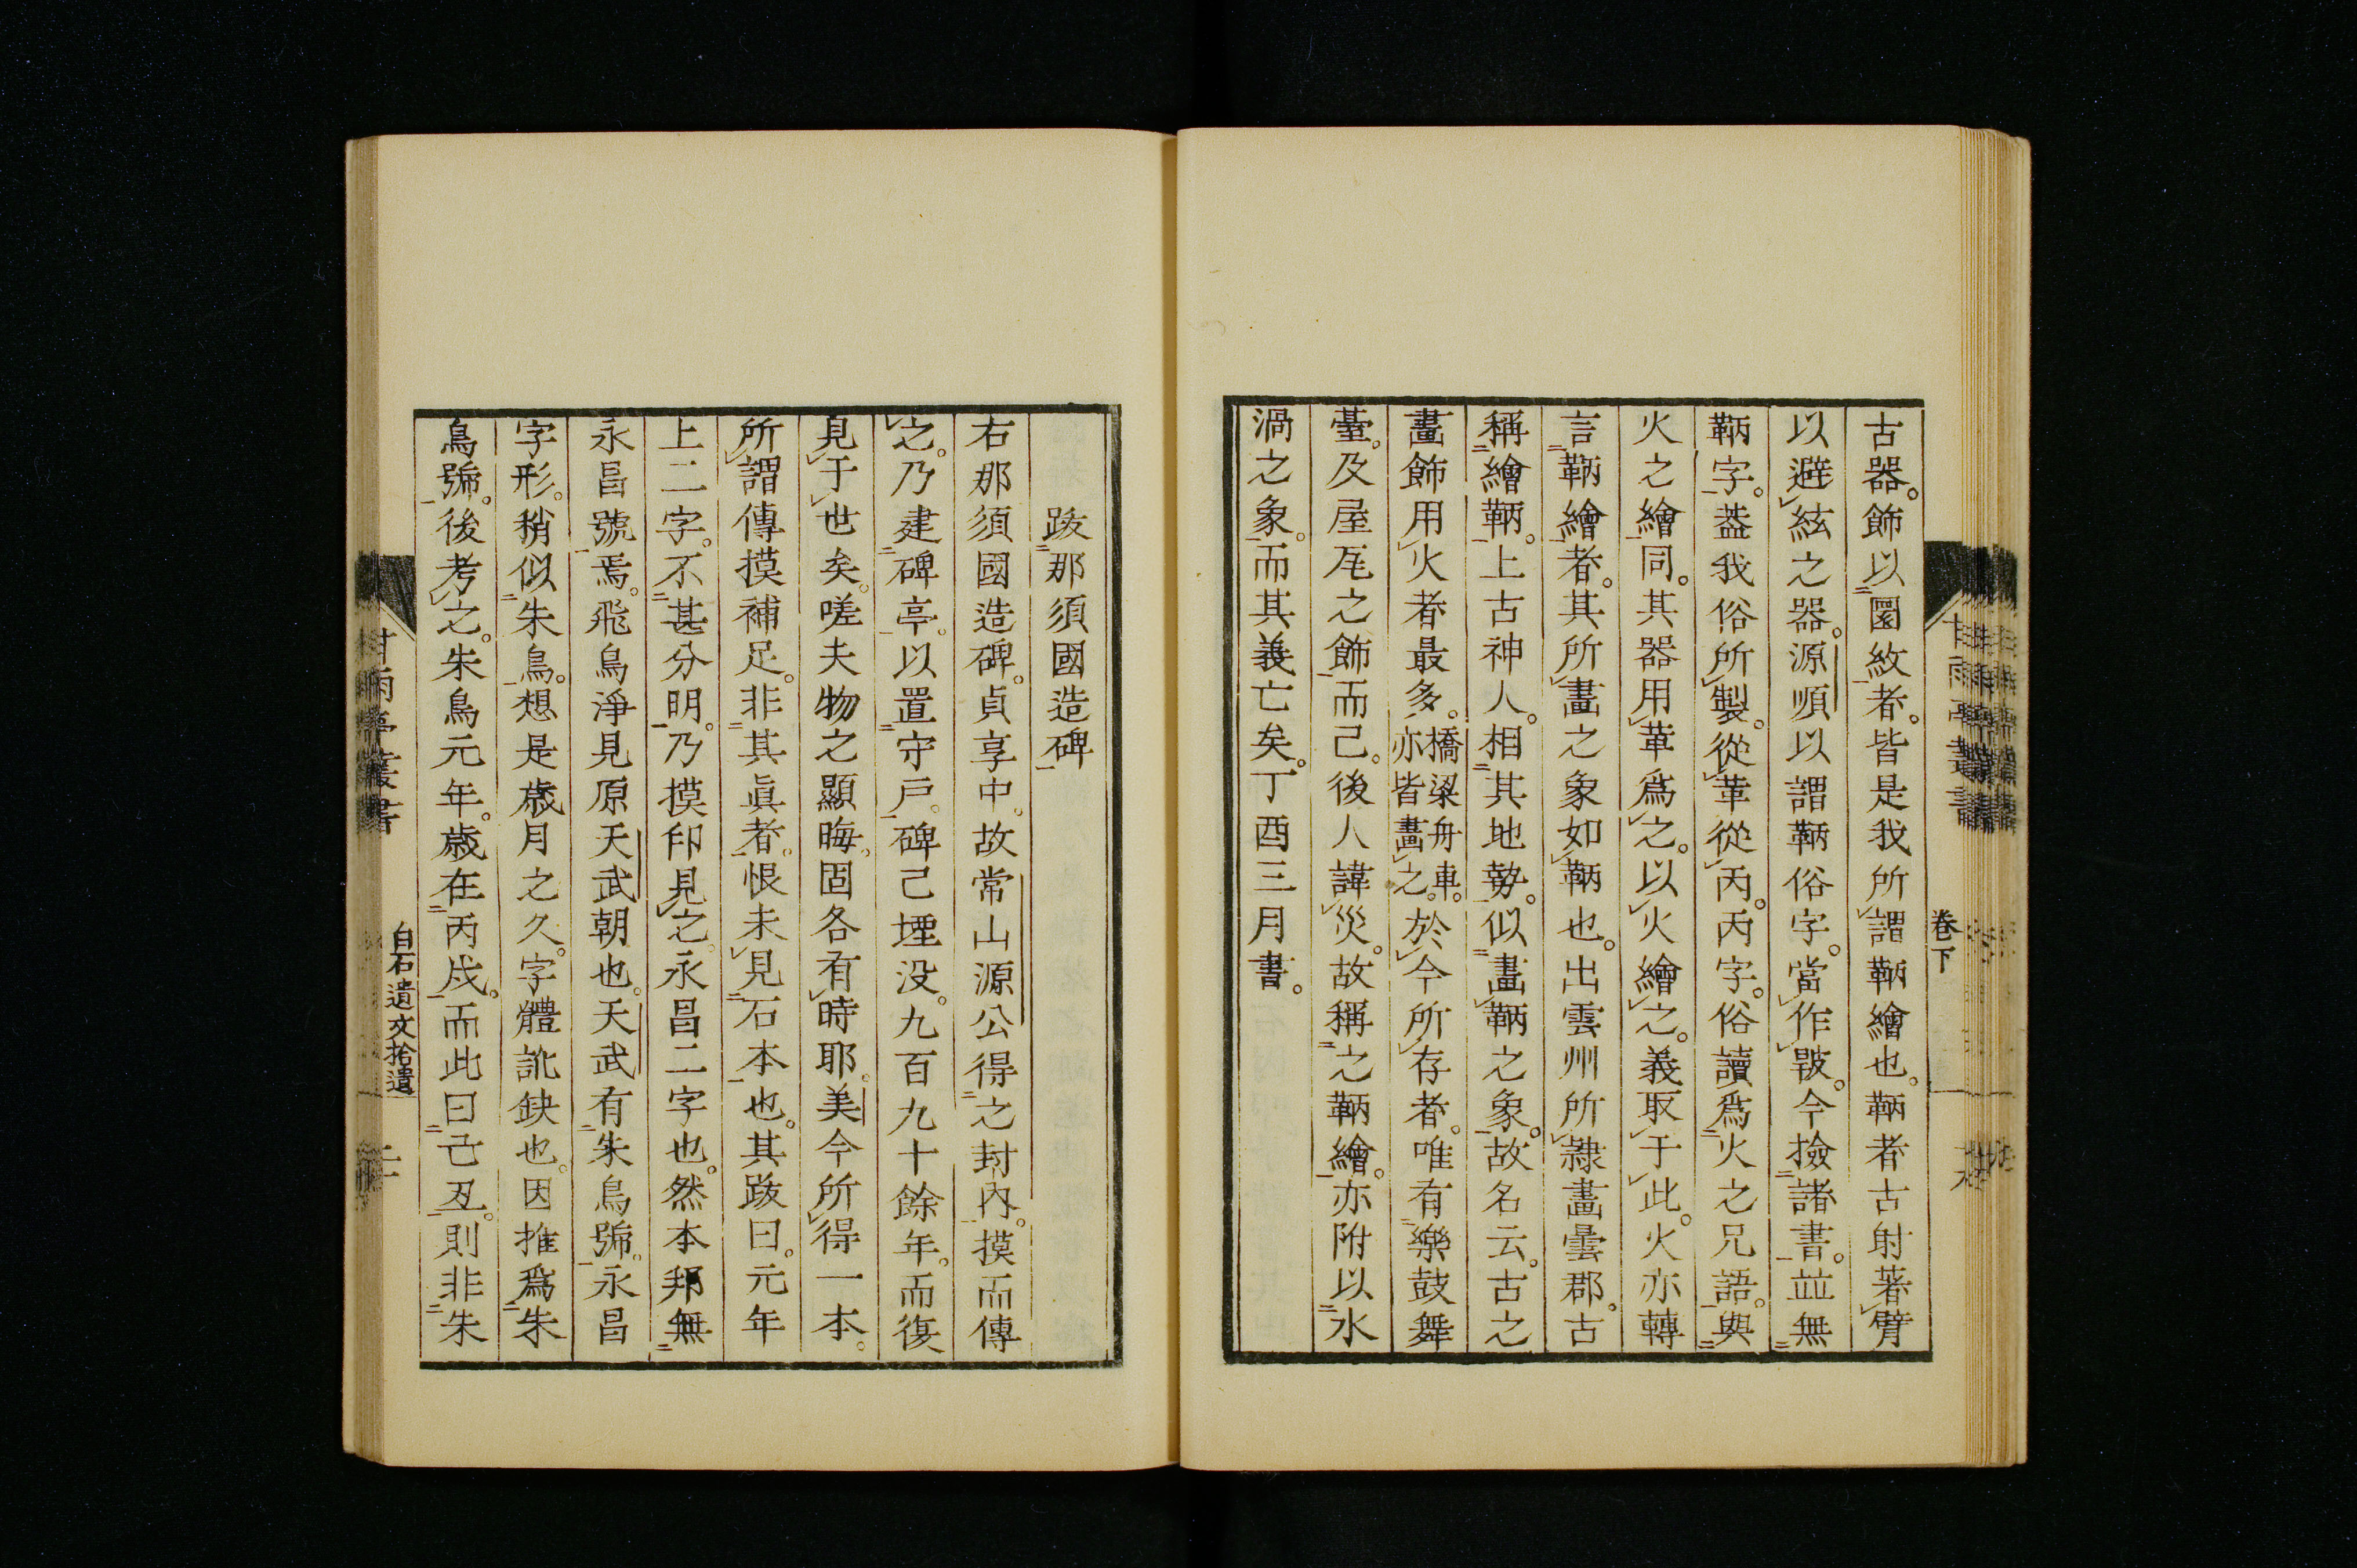 古器。飾以圜紋者。皆是我所謂鞆繪也。鞆者古射著臂
以避絃之器。源順以謂鞆俗字。當作㿺。今撿諸書。並無
鞆字。葢我俗所製。從革從丙。丙字。俗讀爲火之兄語。與
火之繪同。其器用革爲之。以火繪之。義取于此。火亦轉
言鞆繪者。其所畫之象如鞆也。出雲州所隷畫曇郡。古
稱繪鞆。上古神人。相其地勢。似畫鞆之象。故名云。古之
畫飾用火者最多。橋梁舟車。亦皆畫之。於今所存者。唯有樂鼓舞
臺。及屋瓦之飾而已。後人諱災。故稱之鞆繪。亦附以水
渦之象。而其義亡矣。丁酉三月書。
卷下
跋那須國造碑
右那須國造碑。貞享中。故常山源公得之封內。摸而傳
之。乃建碑亭。以置守戶。碑已堙没。九百九十餘年。而復
見于世矣。嗟夫物之顯晦。固各有時耶。美今所得一本。
所謂傳摸補足。非其眞者。恨未見石本也。其跋曰。元年
上二字。不甚分明。乃摸印見之。永昌二字也。然本邦無
永昌號焉。飛鳥淨見原天武朝也。天武有朱鳥號。永昌
字形。稍似朱鳥。想是歲月之久。字體訛缺也。因推爲朱
鳥號。後考之。朱鳥元年。歲在丙戌。而此曰己丑。則非朱
甘雨亭叢書
白石遺文拾遺